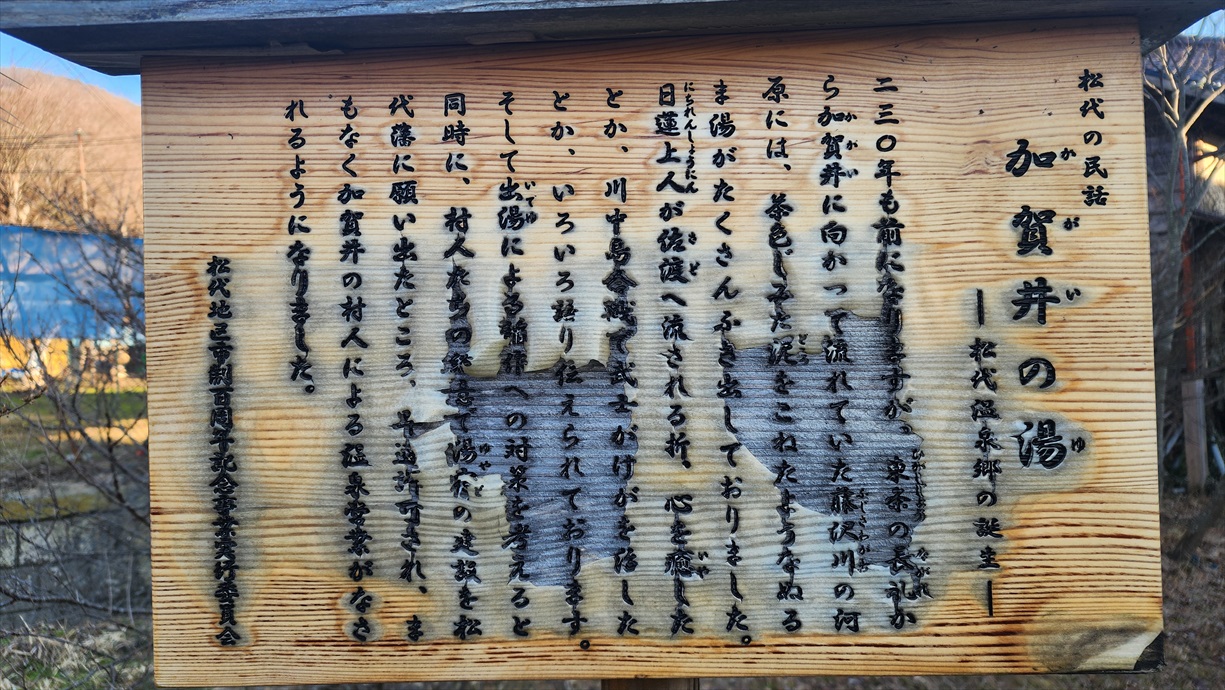 松代の民話
加賀井の湯
―松代温泉郷の誕生―
二三〇年も前になりますが、東条の長礼か
ら加賀井に向かって流れていた藤沢川の河
原には、茶色じみた泥をこねたようなぬる
ま湯がたくさんふき出しておりました。
日蓮上人が佐渡へ流される折、心を癒した
とか、川中島合戦で武士がけがを治した
とか、いろいろ語り伝えられております。
そして出湯によるへの対策を考えると
同時に、村人たちの発意で湯宿の建設を松
代藩に願い出たところ、早速許可され、ま
もなく加賀井の村人による温泉営業がなさ
れるようになりました。
松代地区市制百周年記念事業実行委員会